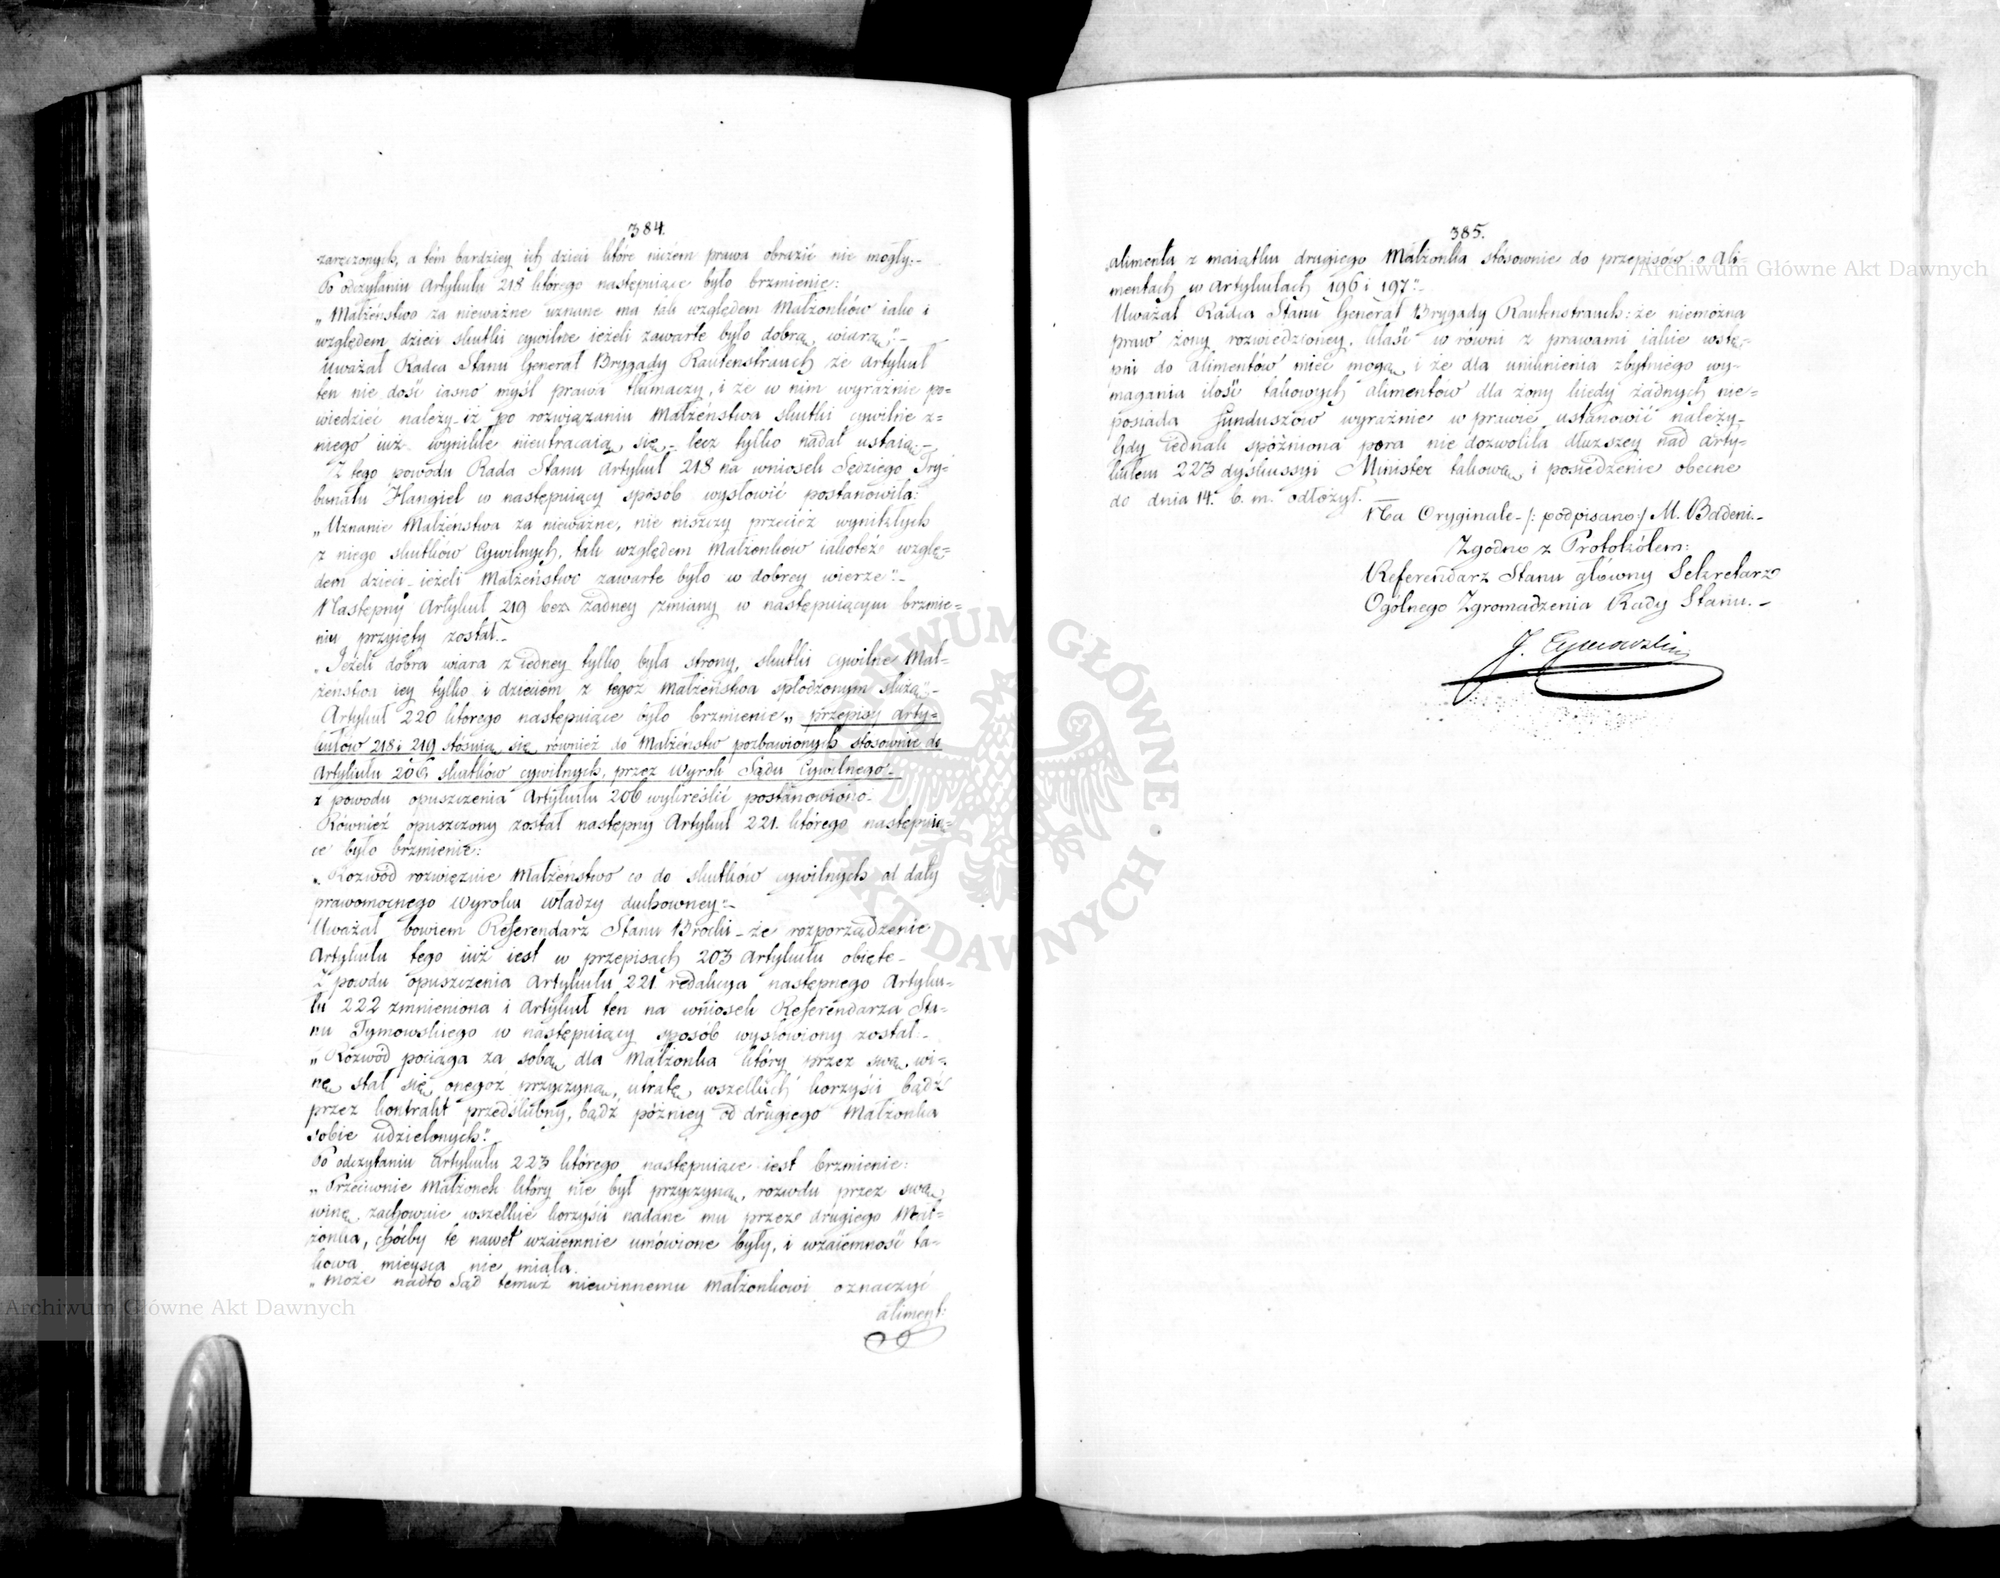 384.
zaręczonych, a tém bardziey ich dzieci które niczém prawa obrazić nie mogły.-
Po odczytaniu Artykułu 218 którego następuiące było brzmienie:
„Małżeństwo za nieważne uznane ma tak względem Małżonków iako i
względem dzieci skutki cywilne ieżeli zawarte było dobrą wiarą".-
Uważał Radca Stanu Generał Brygady Rautenstrauch że Artykuł
ten nie dość iasno myśl prawa tłumaczy, i że w nim wyraźnie po-
wiedzieć należy iż po rozwiązaniu Małżeństwa skutki cywilne z-
niego iuż wynikłe nieutracaią się - lecz tylko nadal ustaią.-
Z tego powodu Rada Stanu Artykuł 218 na wniosek Sędziego Try-
bunału Hangiel w następuiący sposób wysłowić postanowiła:
„Uznanie Małżeństwa za nieważne, nie niszczy przecież wynikłych
z niego skutków Cywilnych, tak względem Małżonków iakoteż wzglę-
dem dzieci - ieżeli Małżeństwo zawarte było w dobrey wierze".-
Następny Artykuł 219 bez żadney zmiany w następuiącym brzmie-
niu przyięty został.-
„Jeżeli dobra wiara z iedney tylko była strony, skutki cywilne Mał-
żeństwa iey tylko i dzieciom z tegoż Małżeństwa spłodzonym służą".-
Artykuł 220 którego następuiące było brzmienie „przepisy Arty-
kułów 218 i 219 stósuią się również do Małżeństw pozbawionych stosownie do
Artykułu 206 skutków cywilnych, przez Wyrok Sądu Cywilnego-
z powodu opuszczenia Artykułu 206 wykreślić postanowiono.
Również opuszczony został następny Artykuł 221. którego następuią-
ce było brzmienie:
„Rozwód rozwięzuie Małżeństwo co do skutków cywilnych od daty
prawomocnego Wyroku Władzy duchowney".-
Uważał bowiem Referendarz Stanu Brocki - że rozporządzenie
Artykułu tego iuż iest w przepisach 203 Artykułu obięte-
Z powodu opuszczenia Artykułu 221. redakcya następnego Artyku-
łu 222 zmnieniona i Artykuł ten na wniosek Referendarza Sta-
nu Tymowskiego w następuiący sposób wysłowiony został.-
„Rozwód pociąga za sobą dla Małżonka który przez swą wi-
nę stał się onegoż przyczyną, utratę wszelkich korzyści bądź
przez kontrakt przedślubny, bądź późniey od drugiego Małżonka
sobie udzielonych".
Po odczytaniu Artykułu 223 którego następuiące iest brzmienie:
„Przeciwnie Małżonek który nie był przyczyną rozwodu przez swą
winę zachowuie wszelkie korzyści nadane mu przez drugiego Mał-
żonka, chóćby te nawet wzaiemnie umówione były, i wzaiemność ta-
kowa mieysca nie miała.
„Może nadto Sąd temuż niewinnemu Małżonkowi oznaczyć
aliment:
385.
„alimenta z maiątku drugiego Małżonka stósownie do przepisów o Ali-
mentach w Artykułach 196 i 197".-
Uważał Radca Stanu Generał Brygady Rautenstrauch: że niemożna
praw żony rozwiedzioney, kłaść w równi z prawami iakie wstę-
pni do alimentów mieć mogą i że dla uniknienia zbytniego wy-
magania ilość takowych alimentów dla żony kiedy żadnych nie-
posiada funduszów wyraźnie w prawie ustanowić należy-
gdy iednak spóźniona pora nie dozwoliła dłuższey nad Arty-
kułem 223 dyskussyi Minister takową i posiedzenie obecne
do dnia 14. b. m. odłożył.
Na Oryginale -/: podpisano:/ M. Badeni.-
Zgodno z Protokółem:
Referendarz Stanu główny Sekretarz
Ogólnego Zgromadzenia Rady Stanu.-
J. Tymowski
ARCHIWUM GŁÓWNE AKT DAWNYCH
Archiwum Główne Akt Dawnych
Archiwum Główne Akt Dawnych